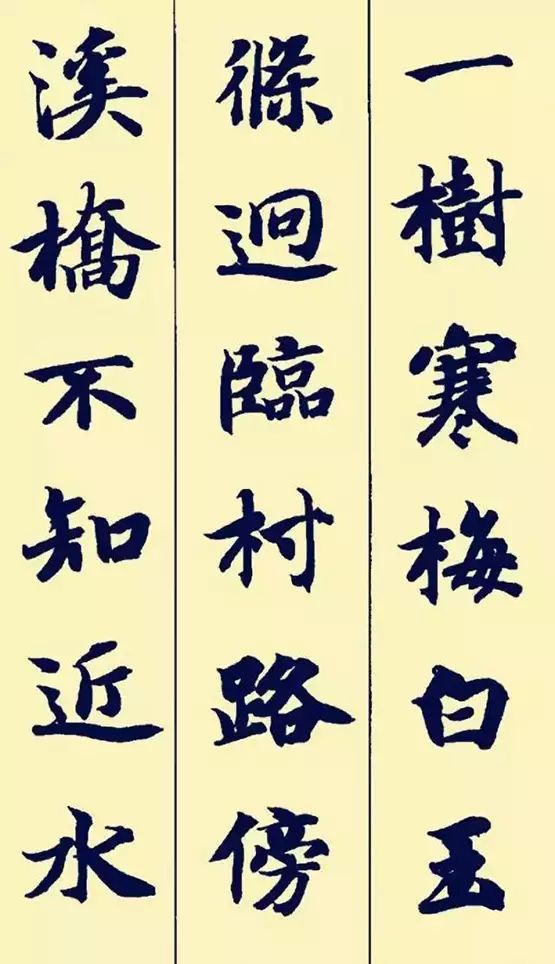 一樹寒梅白玉
條迥臨村路傍
溪橋不知近水